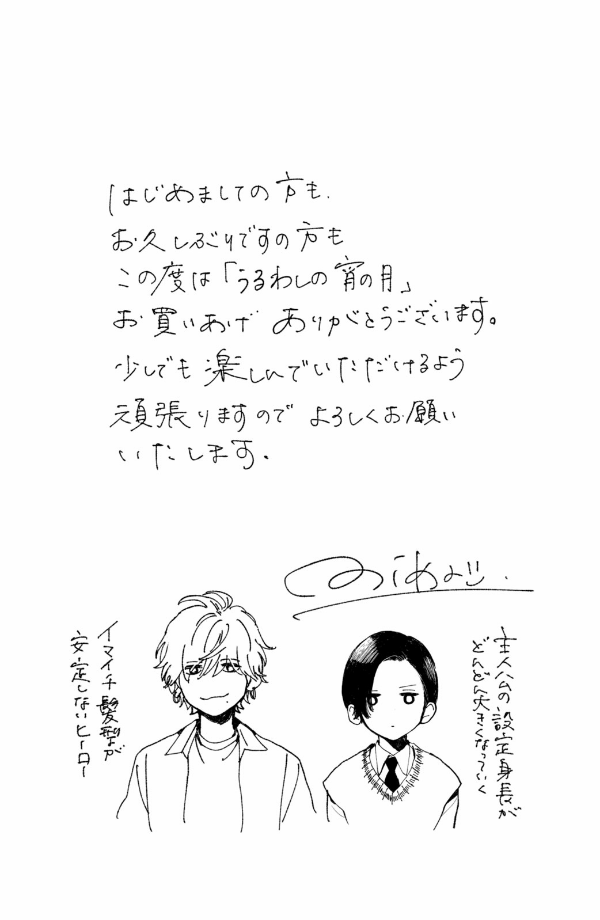 はじめましての方も、
お久しぶりですの方も
この度は「うるわしの宵の月」
お買いあげ ありがとうございます。
少しでも楽しんでいただけるよう
頑張りますので よろしくお願い
いたします。
主人公の設定身長が
どんどん大きくなっていく
イマイチ髪型が
安定しないヒーロー